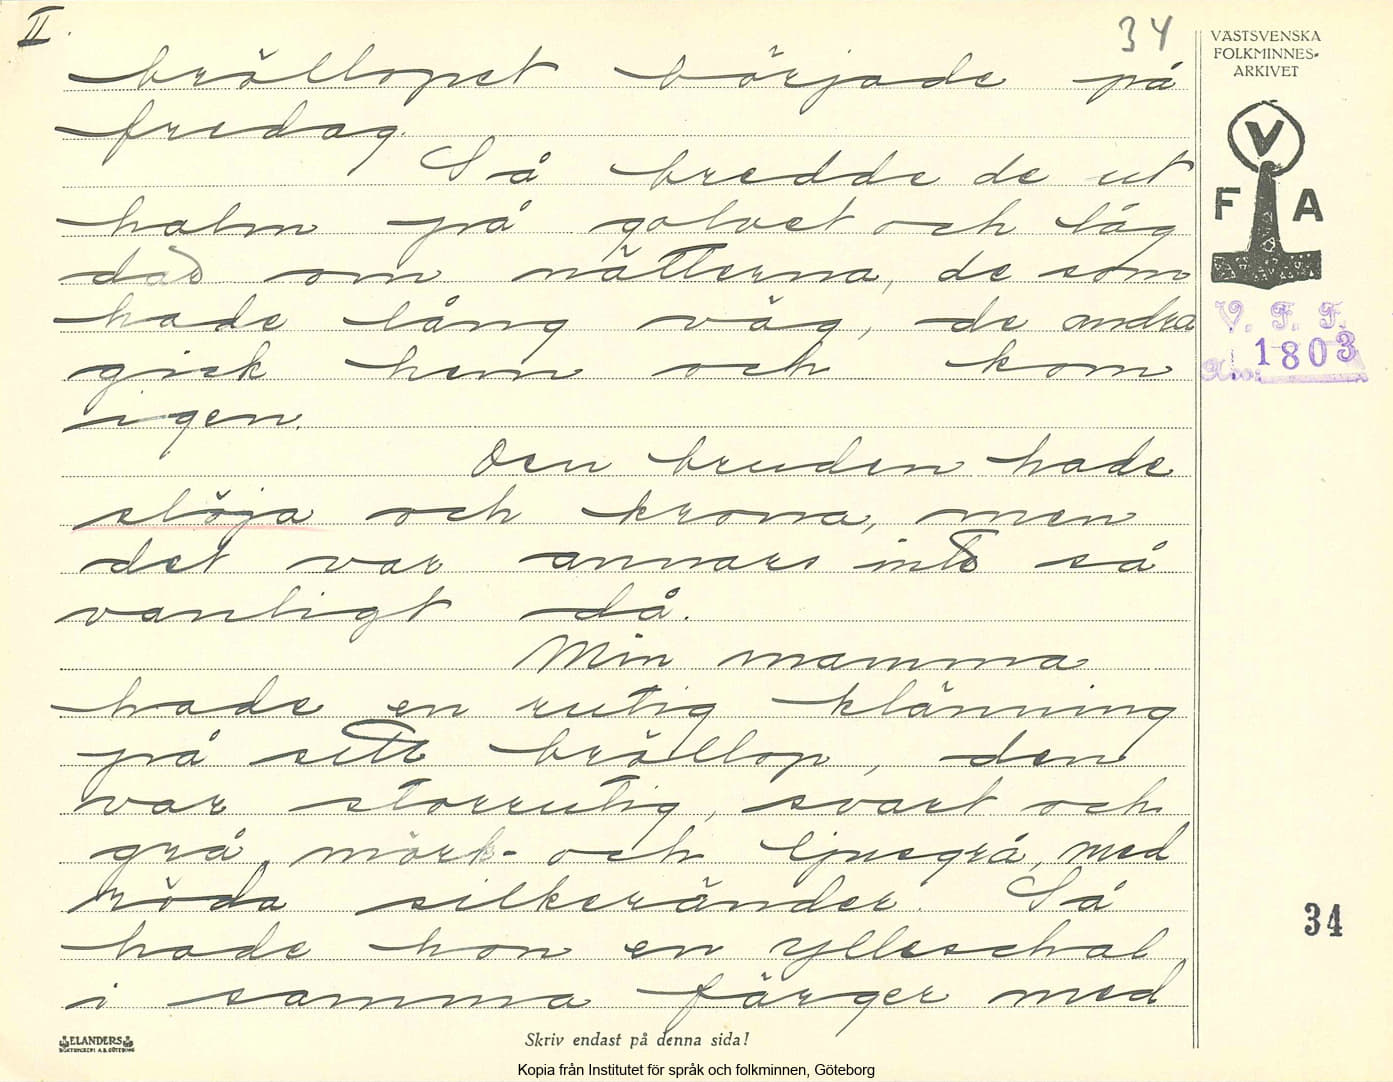 II.
34
VÄSTSVENSKA
FOLKMINNES-
ARKIVET
V
F A
V. F. F.
1803
bröllopet började på
fredag.
Så bredde de ut
halm på golvet och låg
där om nätterna, de som
hade lång väg, de andra
gick hem och kom
igen.
Den bruden hade
slöja och krona, men
det var annars inte så
vanligt då.
Min mamma
hade en rutig klänning
på sitt bröllop, den
var storrutig, svart och
grå, mörk- och ljusgrå, med
röda silkeränder. Så
hade hon en ylleschal
i samma färger med
34
ELANDERS
BOKTRYCKERI A.B. GÖTEBORG
Skriv endast på denna sida!
Kopia från Institutet för språk och folkminnen, Göteborg